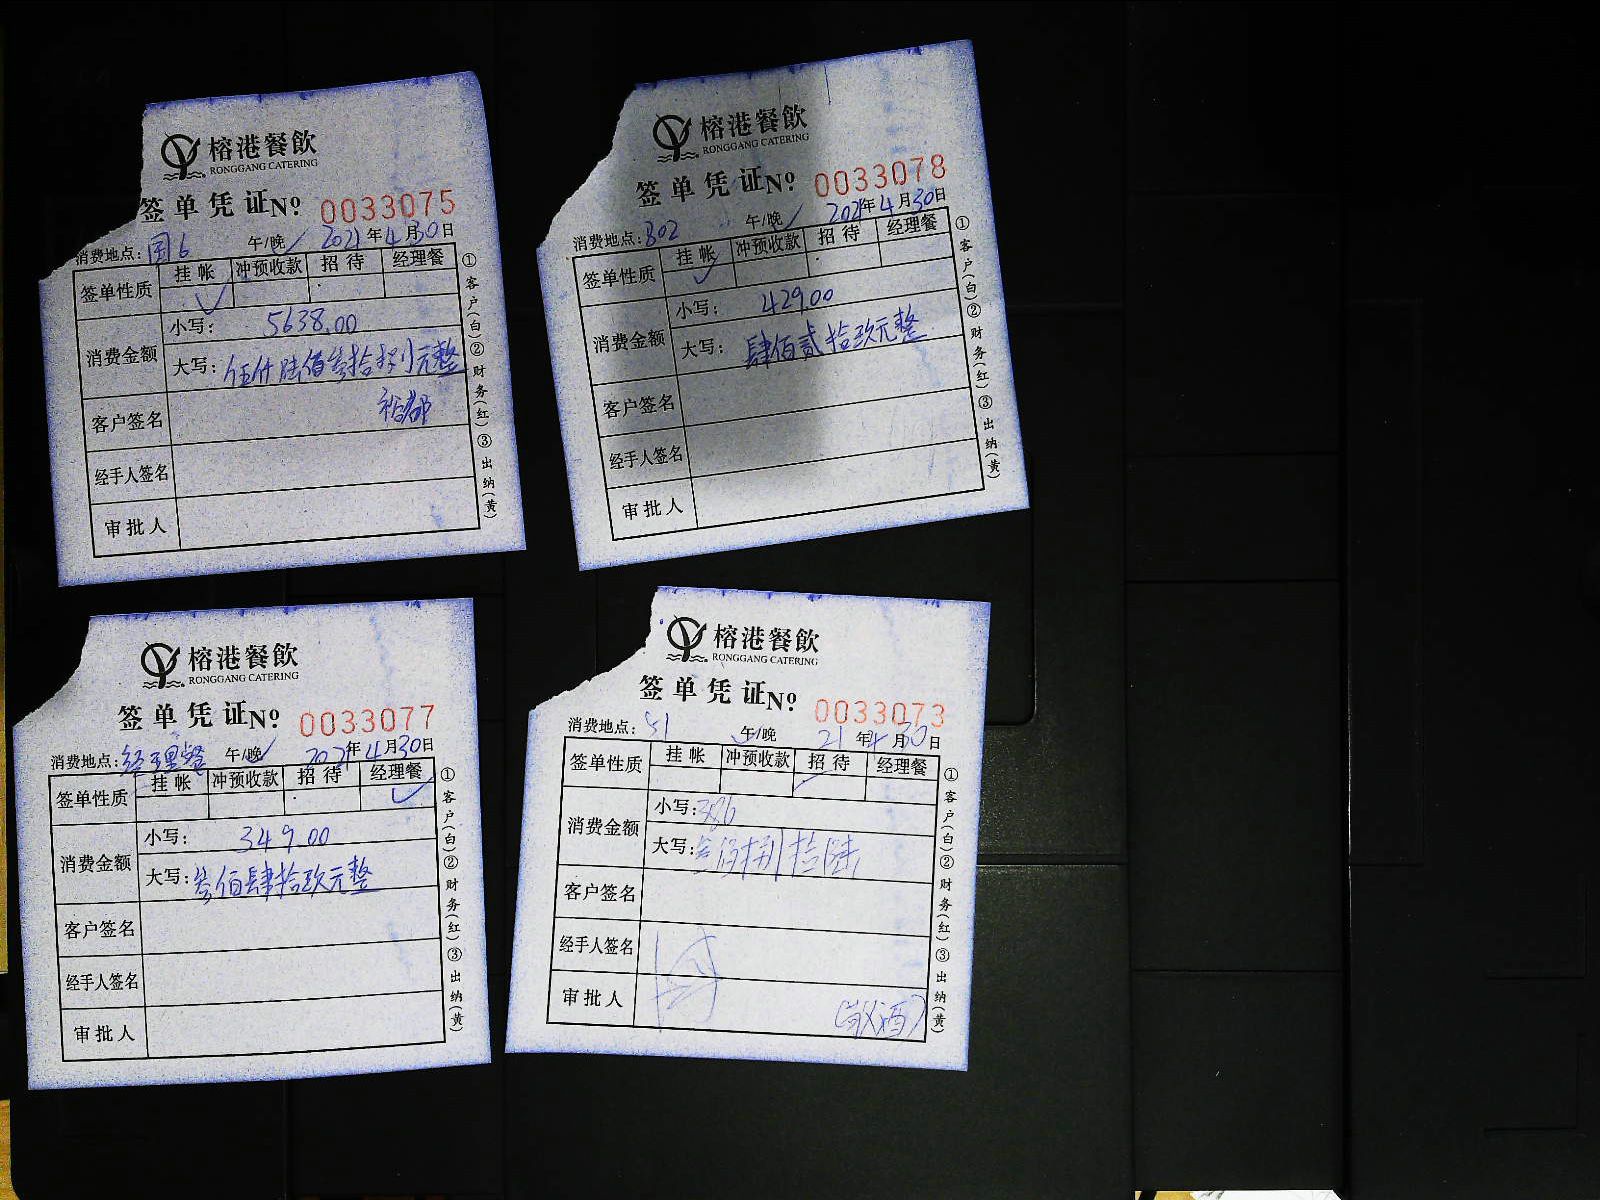 榕港餐飲
RONGGANG CATERING
签单凭证№ 0033075
消费地点: 国6 午/晚✓ 2021年4月30日
签单性质 挂帐 冲预收款 招待 经理餐
✓
消费金额 小写: 5638.00
大写: 伍仟陆佰叁拾捌元整
客户签名
经手人签名
审批人
①客户(白)②财务(红)③出纳(黄)
榕港餐飲
RONGGANG CATERING
签单凭证№ 0033078
消费地点: 302 午/晚✓ 2021年4月30日
签单性质 挂帐 冲预收款 招待 经理餐
✓
消费金额 小写: 429.00
大写: 肆佰贰拾玖元整
客户签名
经手人签名
审批人
①客户(白)②财务(红)③出纳(黄)
榕港餐飲
RONGGANG CATERING
签单凭证№ 0033077
消费地点: 经理餐 午/晚✓ 2021年4月30日
签单性质 挂帐 冲预收款 招待 经理餐
✓
消费金额 小写: 349.00
大写: 叁佰肆拾玖元整
客户签名
经手人签名
审批人
①客户(白)②财务(红)③出纳(黄)
榕港餐飲
RONGGANG CATERING
签单凭证№ 0033073
消费地点: 51 午✓/晚 21年4月30日
签单性质 挂帐 冲预收款 招待 经理餐
✓
消费金额 小写: 386
大写: 叁佰捌拾陆
客户签名
经手人签名
审批人 (敬酒)
①客户(白)②财务(红)③出纳(黄)